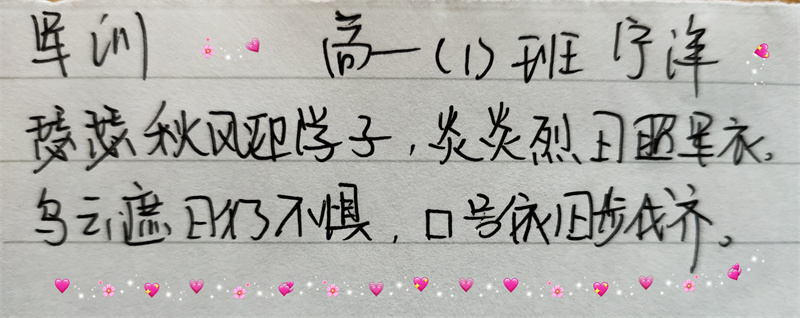 军训 高一(1)班 宁洋
瑟瑟秋风迎学子,炎炎烈日照军衣。
乌云遮日仍不惧,口号依旧步伐齐。